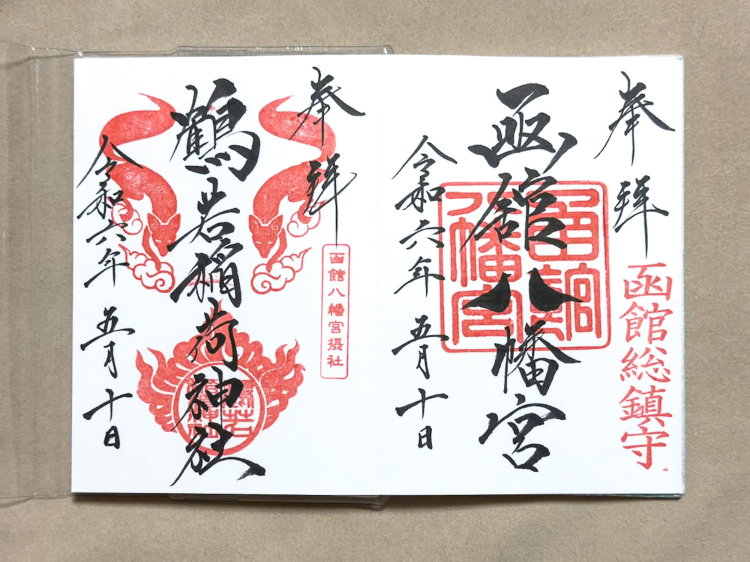 奉拝
函館総鎮守
函館八幡宮
函館八幡宮
令和六年 五月十日
奉拝
函館八幡宮摂社
鶴若稲荷神社
令和六年 五月十日